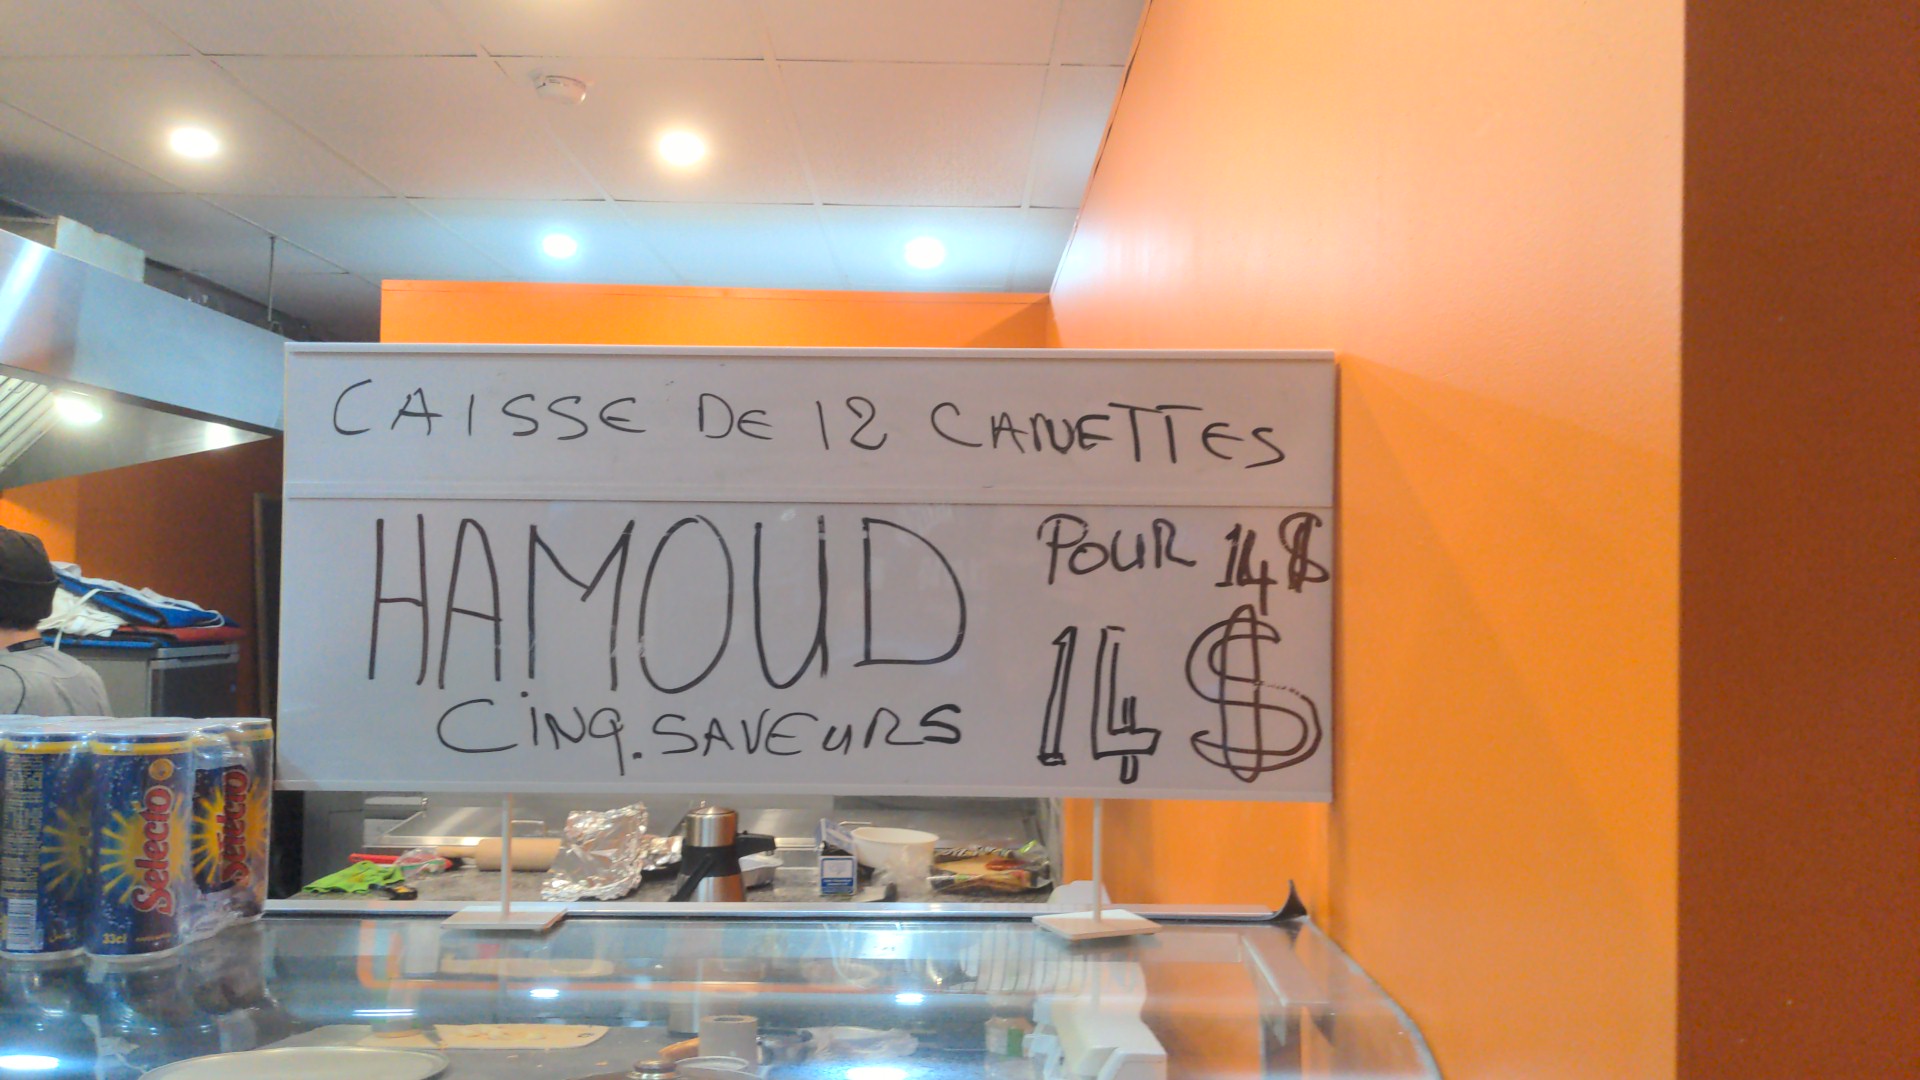 CAISSE DE 12 CANETTES
HAMOUD
POUR 14$
14$
CINQ. SAVEURS
Selecto
33cl
Selecto